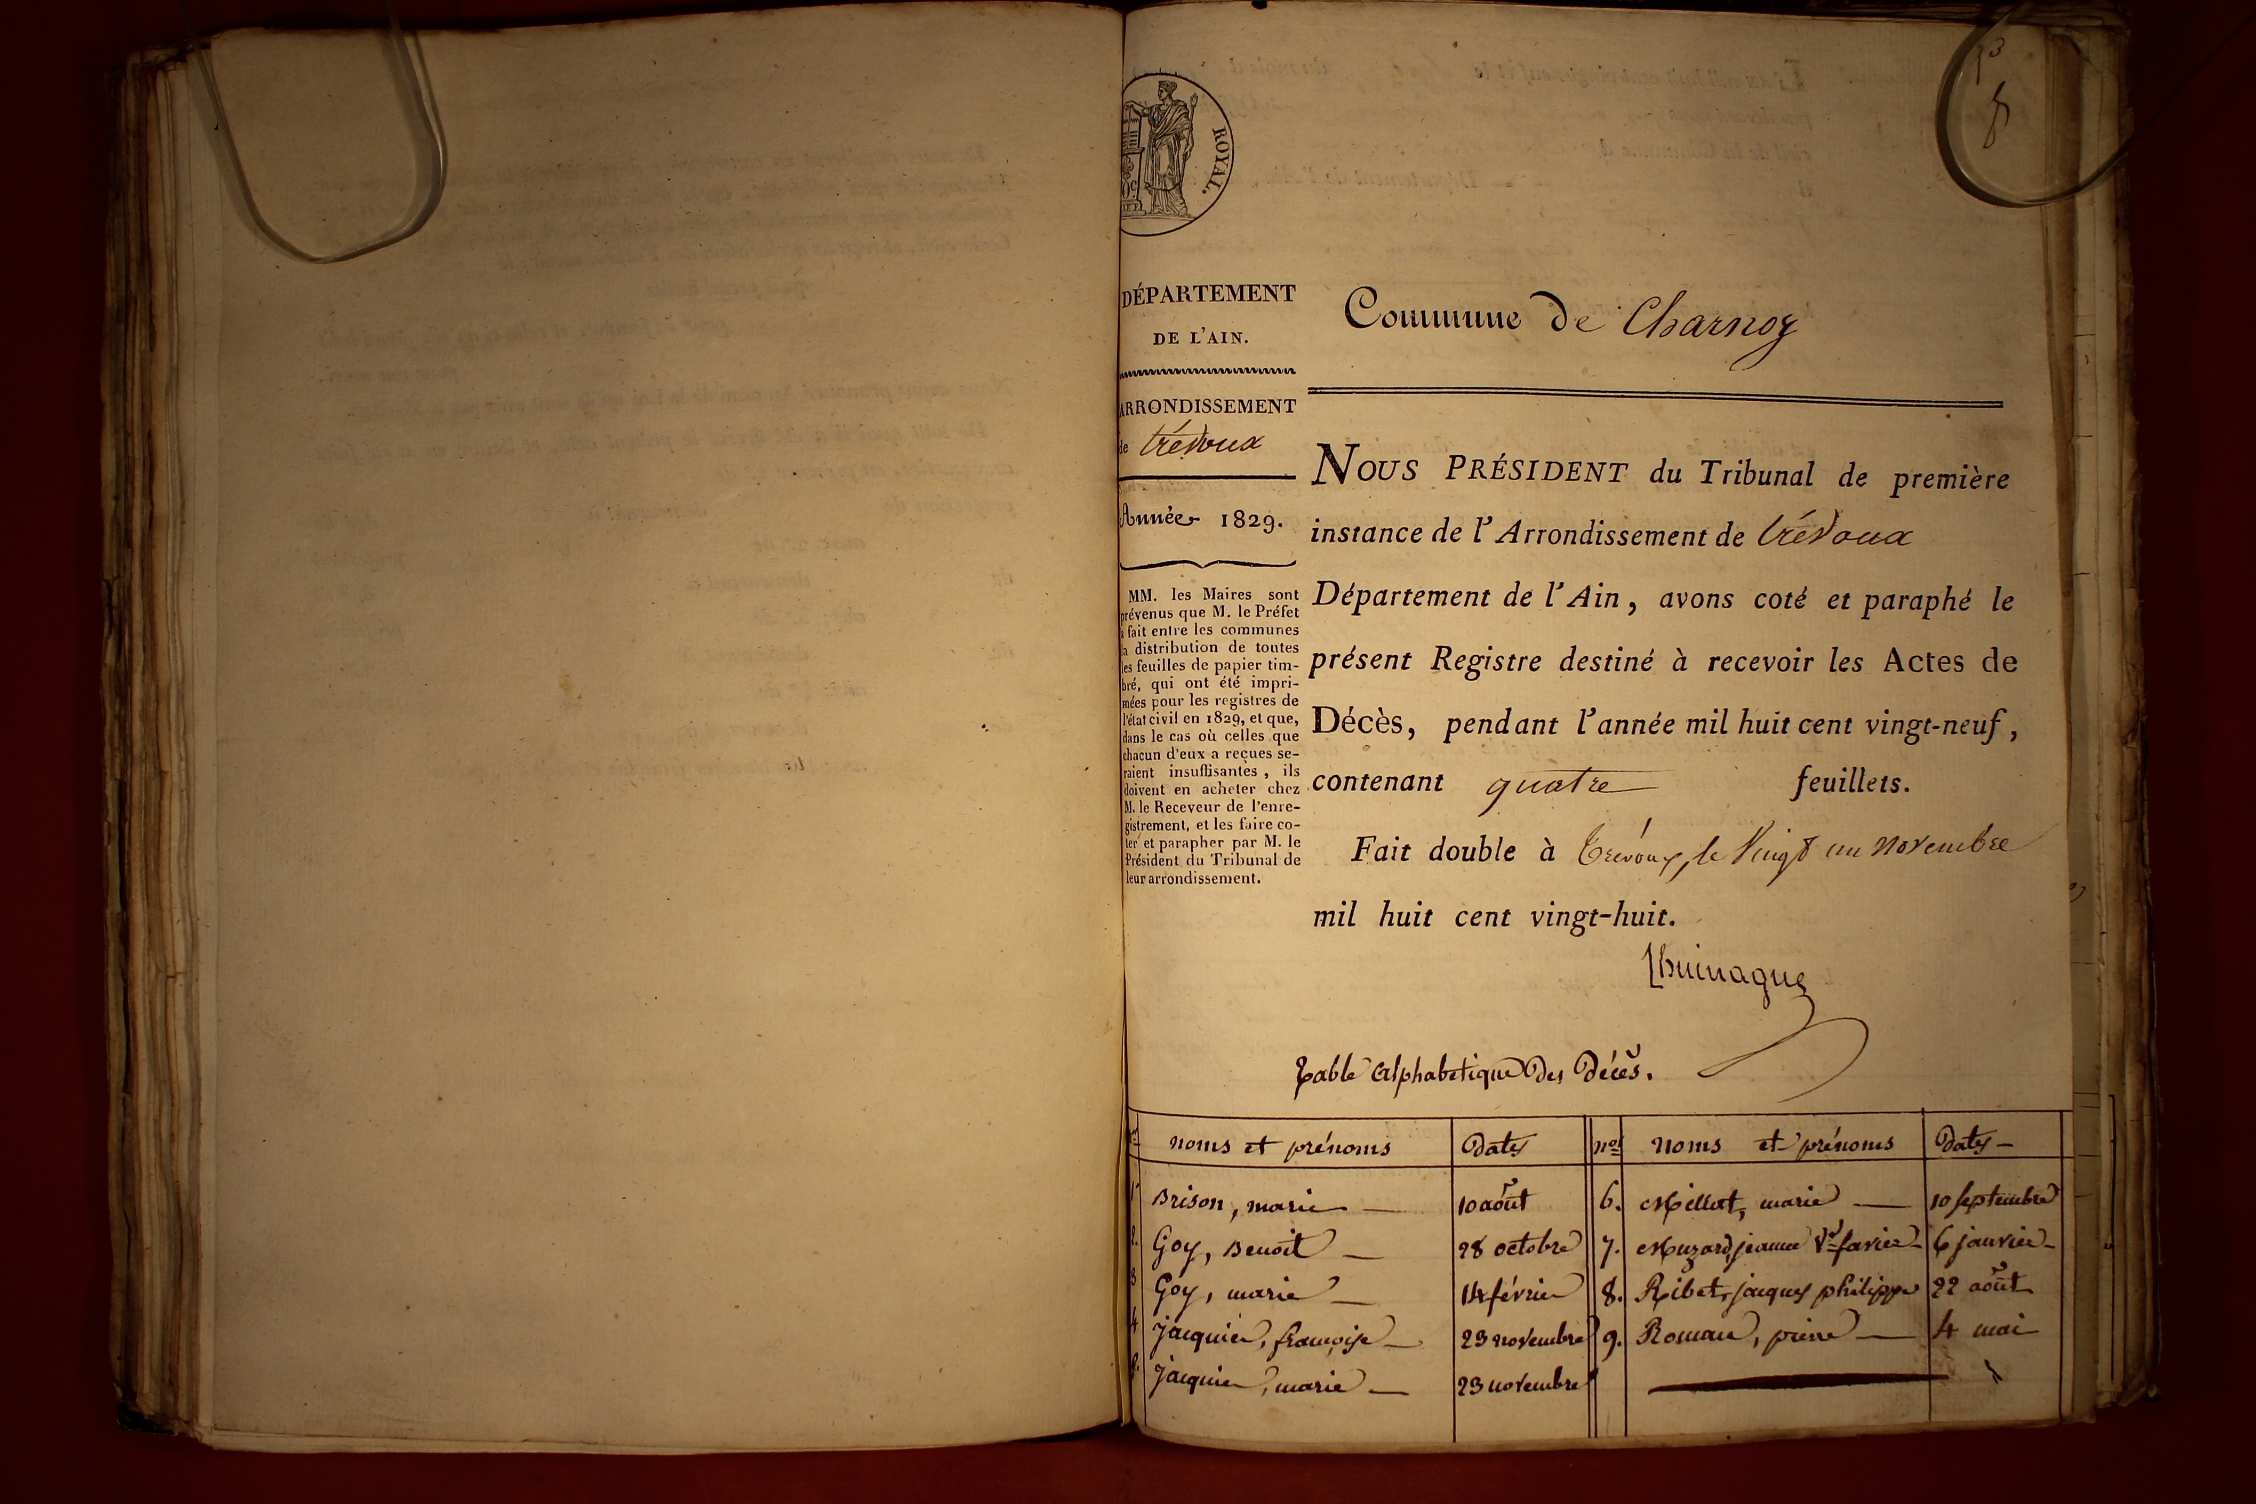 ROYAL.
DÉPARTEMENT
DE L'AIN.
ARRONDISSEMENT
de trévoux
Année 1829.
MM. les Maires sont
prévenus que M. le Préfet
a fait entre les communes
la distribution de toutes
les feuilles de papier tim-
bré, qui ont été impri-
mées pour les registres de
l'état civil en 1829, et que,
dans le cas où celles que
chacun d'eux a reçues se-
raient insuffisantes, ils
doivent en acheter chez
M. le Receveur de l'enre-
gistrement, et les faire co-
ter et parapher par M. le
Président du Tribunal de
leur arrondissement.
Commune de Charnoz
NOUS PRÉSIDENT du Tribunal de première
instance de l'Arrondissement de trévoux
Département de l'Ain, avons coté et paraphé le
présent Registre destiné à recevoir les Actes de
Décès, pendant l'année mil huit cent vingt-neuf,
contenant quatre feuillets.
Fait double à trévoux, le Vingt un novembre
mil huit cent vingt-huit.
table alphabetique des décès.
noms et prénoms Dates nos noms et prénoms Dates
1. Brison, marie 10 août 6. Millet, marie 10 septembre
2. Goy, Benoît 28 octobre 7. Muzard, jeanne Ve favier 6 janvier
3 Goy, marie 14 février 8. Ribet, jacques philippe 22 août
4 jacquier, françoise 23 novembre 9. Roman, pierre 4 mai
5. jacquier, marie 23 novembre